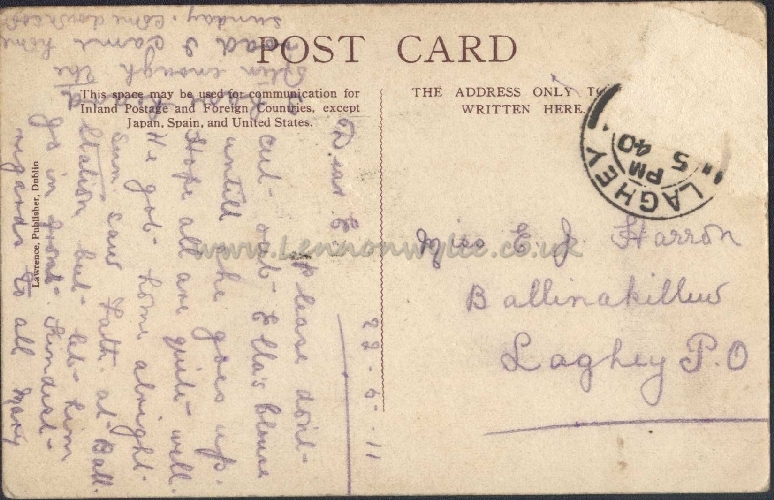 POST CARD
This space may be used for communication for
Inland Postage and Foreign Countries, except
Japan, Spain, and United States.
THE ADDRESS ONLY TO
WRITTEN HERE.
LAGHEY
5 40 PM
Miss E J Harron
Ballinakillew
Laghey P.O
22-5-11
Dear E Please don't
cut out Ella's blouse
untill she goes up.
Hope all are quite well.
He got home alright.
Sun saw Fath. at Ball.
Station but let him
go in front. Kindest
regards to all Mary
enough the
road & came home
sunday. come down
Lawrence, Publisher, Dublin
www.Lennonwylie.co.uk